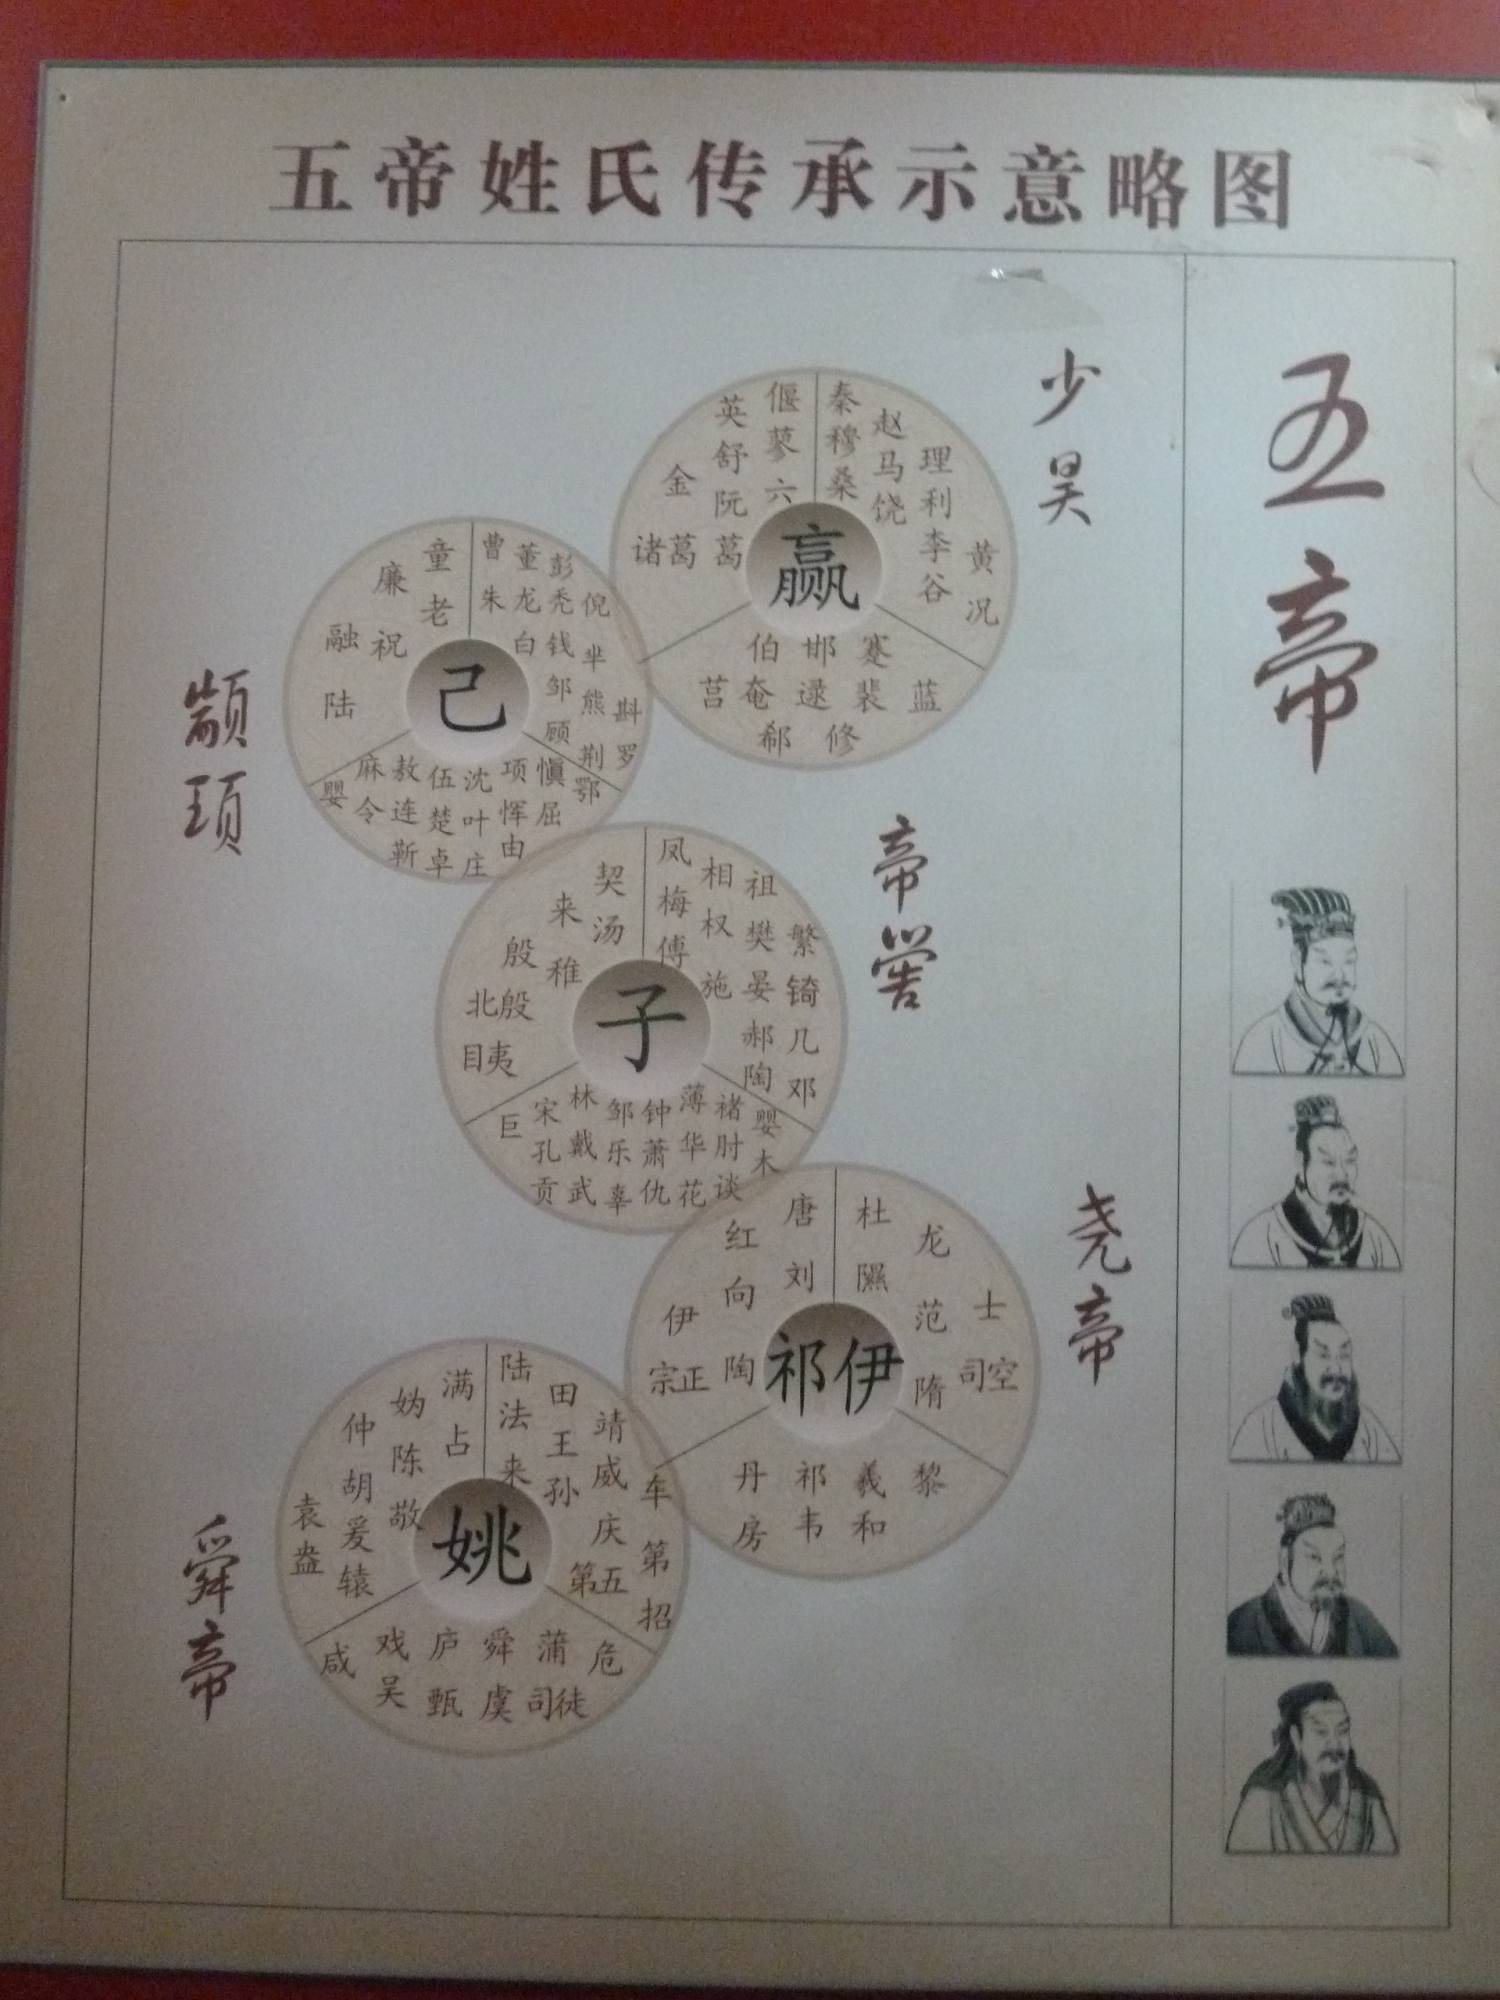 五帝姓氏传承示意略图
五帝
少昊
赢
偃蓼六
英舒阮葛
金
诸葛
秦穆桑
赵马饶
理利李谷
黄况
伯邯蹇
莒奄逯裴蓝
郗修
颛顼
己
童老
廉祝
融陆
曹朱
董龙白
彭秃钱邹顾
倪芈熊荆
斟罗
婴
麻令
敖连靳
伍楚卓
沈叶庄
项恽由
慎屈
鄂
帝喾
子
契汤
来稚
殷
北殷
目夷
凤梅傅
相权施
祖樊晏郝陶
繁锜几邓
巨
宋孔贡
林戴武
邹乐辜
钟萧仇
薄华花
褚肘谈
婴木
尧帝
祁伊
唐刘
红向陶
伊
宗正
杜隰
龙范隋
士
司空
丹房
祁韦
羲和
黎
舜帝
姚
满占
妫陈敬
仲胡爰辕
袁盎
陆法来
田王孙
靖威庆
第五
车第招
咸
戏吴
庐甄
舜虞
蒲
司徒
危